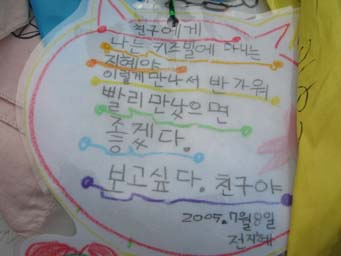 친구에게
나는 키즈빌에 다니는
지혜야
이렇게 만나서 반가워
빨리 만낫으면
좋겠다.
보고싶다. 친구야
2005.7월8일
전지혜